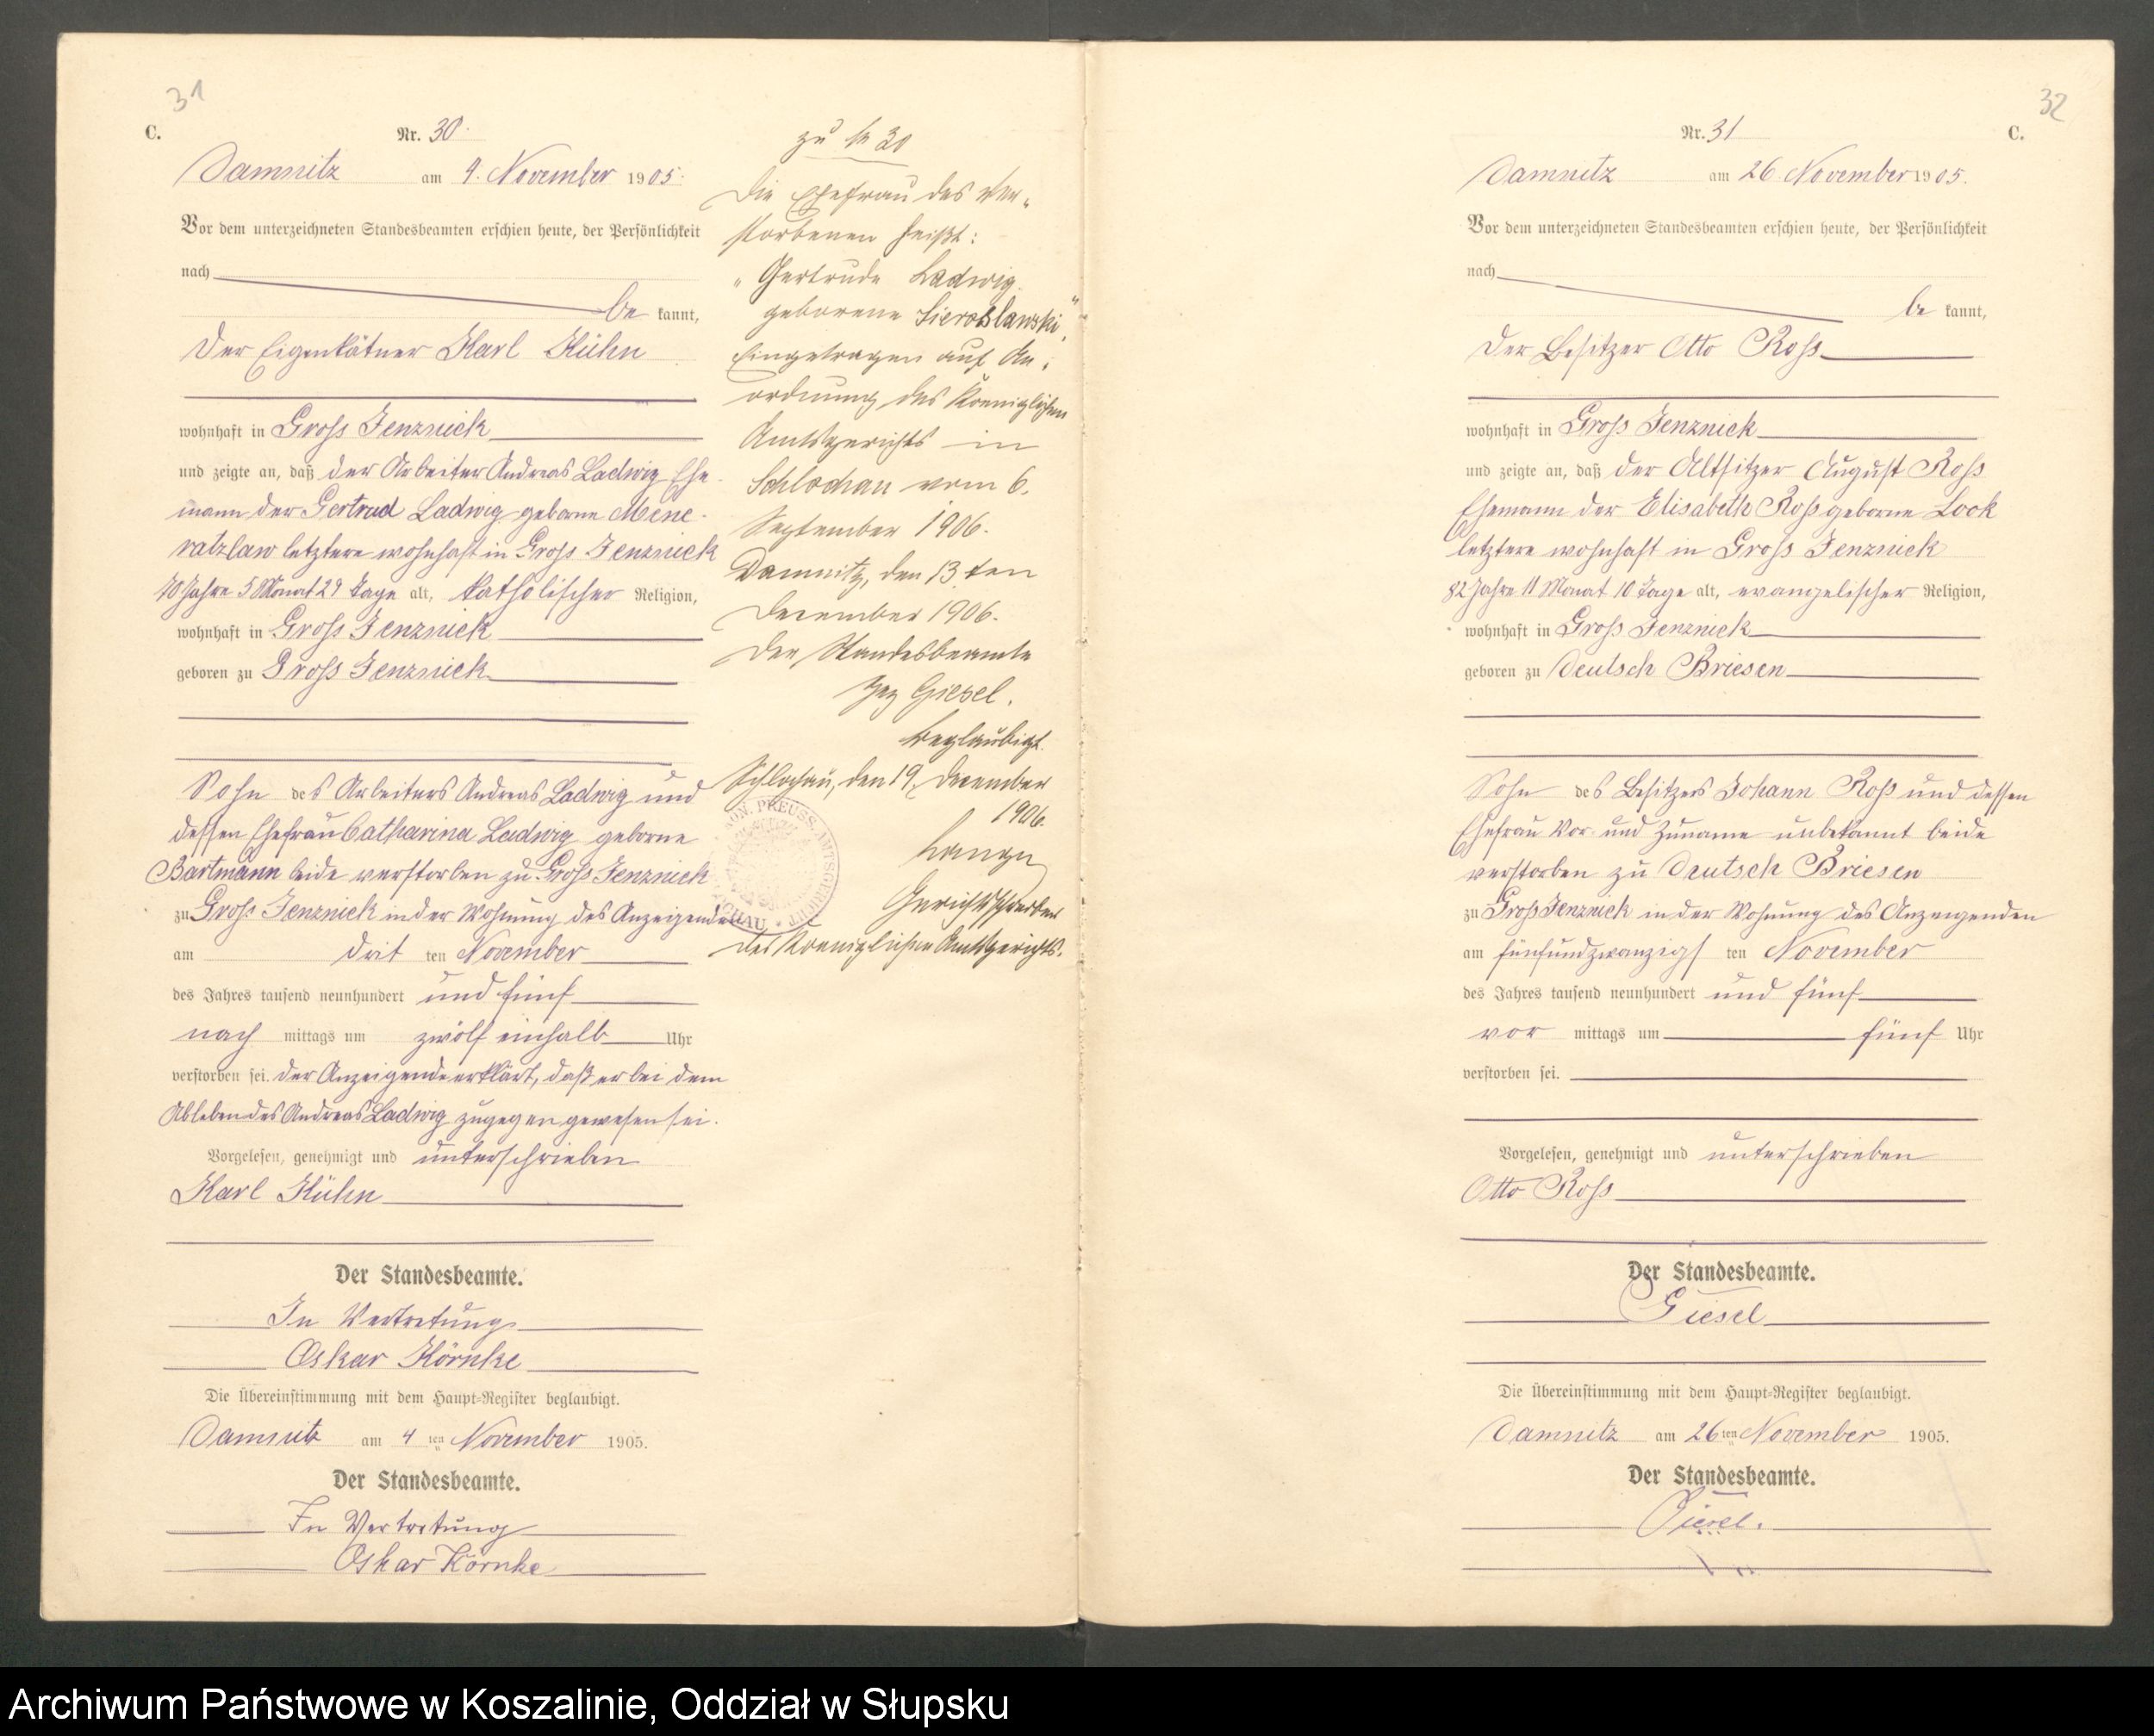 31
C.
Nr. 30.
Damnitz am 4. November 1905.
Vor dem unterzeichneten Standesbeamten erschien heute, der Persönlichkeit
nach
be kannt,
der Eigenkätner Karl Kühn
wohnhaft in Gross Jenznick
und zeigte an, daß der Arbeiter Andreas Ladwig Ehe-
mann der Gertrud Ladwig geborne Mene-
ratzlaw letztere wohnhaft in Gross Jenznick
70 Jahre 5 Monat 29 Tage alt, katholischer Religion,
wohnhaft in Gross Jenznick
geboren zu Gross Jenznick
Sohn des Arbeiters Andreas Ladwig und
dessen Ehefrau Catharina Ladwig geborne
Bartmann beide verstorben zu Gross Jenznick
zu Gross Jenznick in der Wohnung des Anzeigenden
am drit ten November
des Jahres tausend neunhundert und fünf
nach mittags um zwölf einhalb Uhr
verstorben sei. der Anzeigende erklärt, daß er bei dem
Ableben des Andreas Ladwig zugegen gewesen sei.
Vorgelesen, genehmigt und unterschrieben
Karl Kühn
Der Standesbeamte.
In Vertretung
Oskar Körnke
Die Übereinstimmung mit dem Haupt-Register beglaubigt.
Damnitz am 4 ten November 1905.
Der Standesbeamte.
In Vertretung
Oskar Körnke
zu № 30
Die Ehefrau des Ver-
storbenen heißt:
"Gertrude Ladwig
geborene Sieroslawski"
Eingetragen auf An-
ordnung des Koeniglichen
Amtsgerichts in
Schlochau vom 6.
September 1906.
Damnitz, den 13. ten
December 1906.
Der Standesbeamte
gez Giesel.
beglaubigt.
Schlochau, den 19. December
1906.
Lange
Gerichtsschreiber
des Koeniglichen Amtsgerichts.
KÖN. PREUSS. AMTSGERICHT
32
Nr. 31
C.
Damnitz am 26 November 1905.
Vor dem unterzeichneten Standesbeamten erschien heute, der Persönlichkeit
nach
be kannt,
der Besitzer Otto Ross
wohnhaft in Gross Jenznick
und zeigte an, daß der Altsitzer August Ross
Ehemann der Elisabeth Ross geborne Look
letztere wohnhaft in Gross Jenznick
82 Jahre 11 Monat 10 Tage alt, evangelischer Religion,
wohnhaft in Gross Jenznick
geboren zu Deutsch Briesen
Sohn des Besitzers Johann Ross und dessen
Ehefrau Vor- und Zuname unbekannt beide
verstorben zu Deutsch Briesen
zu Gross Jenznick in der Wohnung des Anzeigenden
am fünfundzwanzigs ten November
des Jahres tausend neunhundert und fünf
vor mittags um fünf Uhr
verstorben sei.
Vorgelesen, genehmigt und unterschrieben
Otto Ross
Der Standesbeamte.
Giesel
Die Übereinstimmung mit dem Haupt-Register beglaubigt.
Damnitz am 26 ten November 1905.
Der Standesbeamte.
Giesel.
Archiwum Państwowe w Koszalinie, Oddział w Słupsku